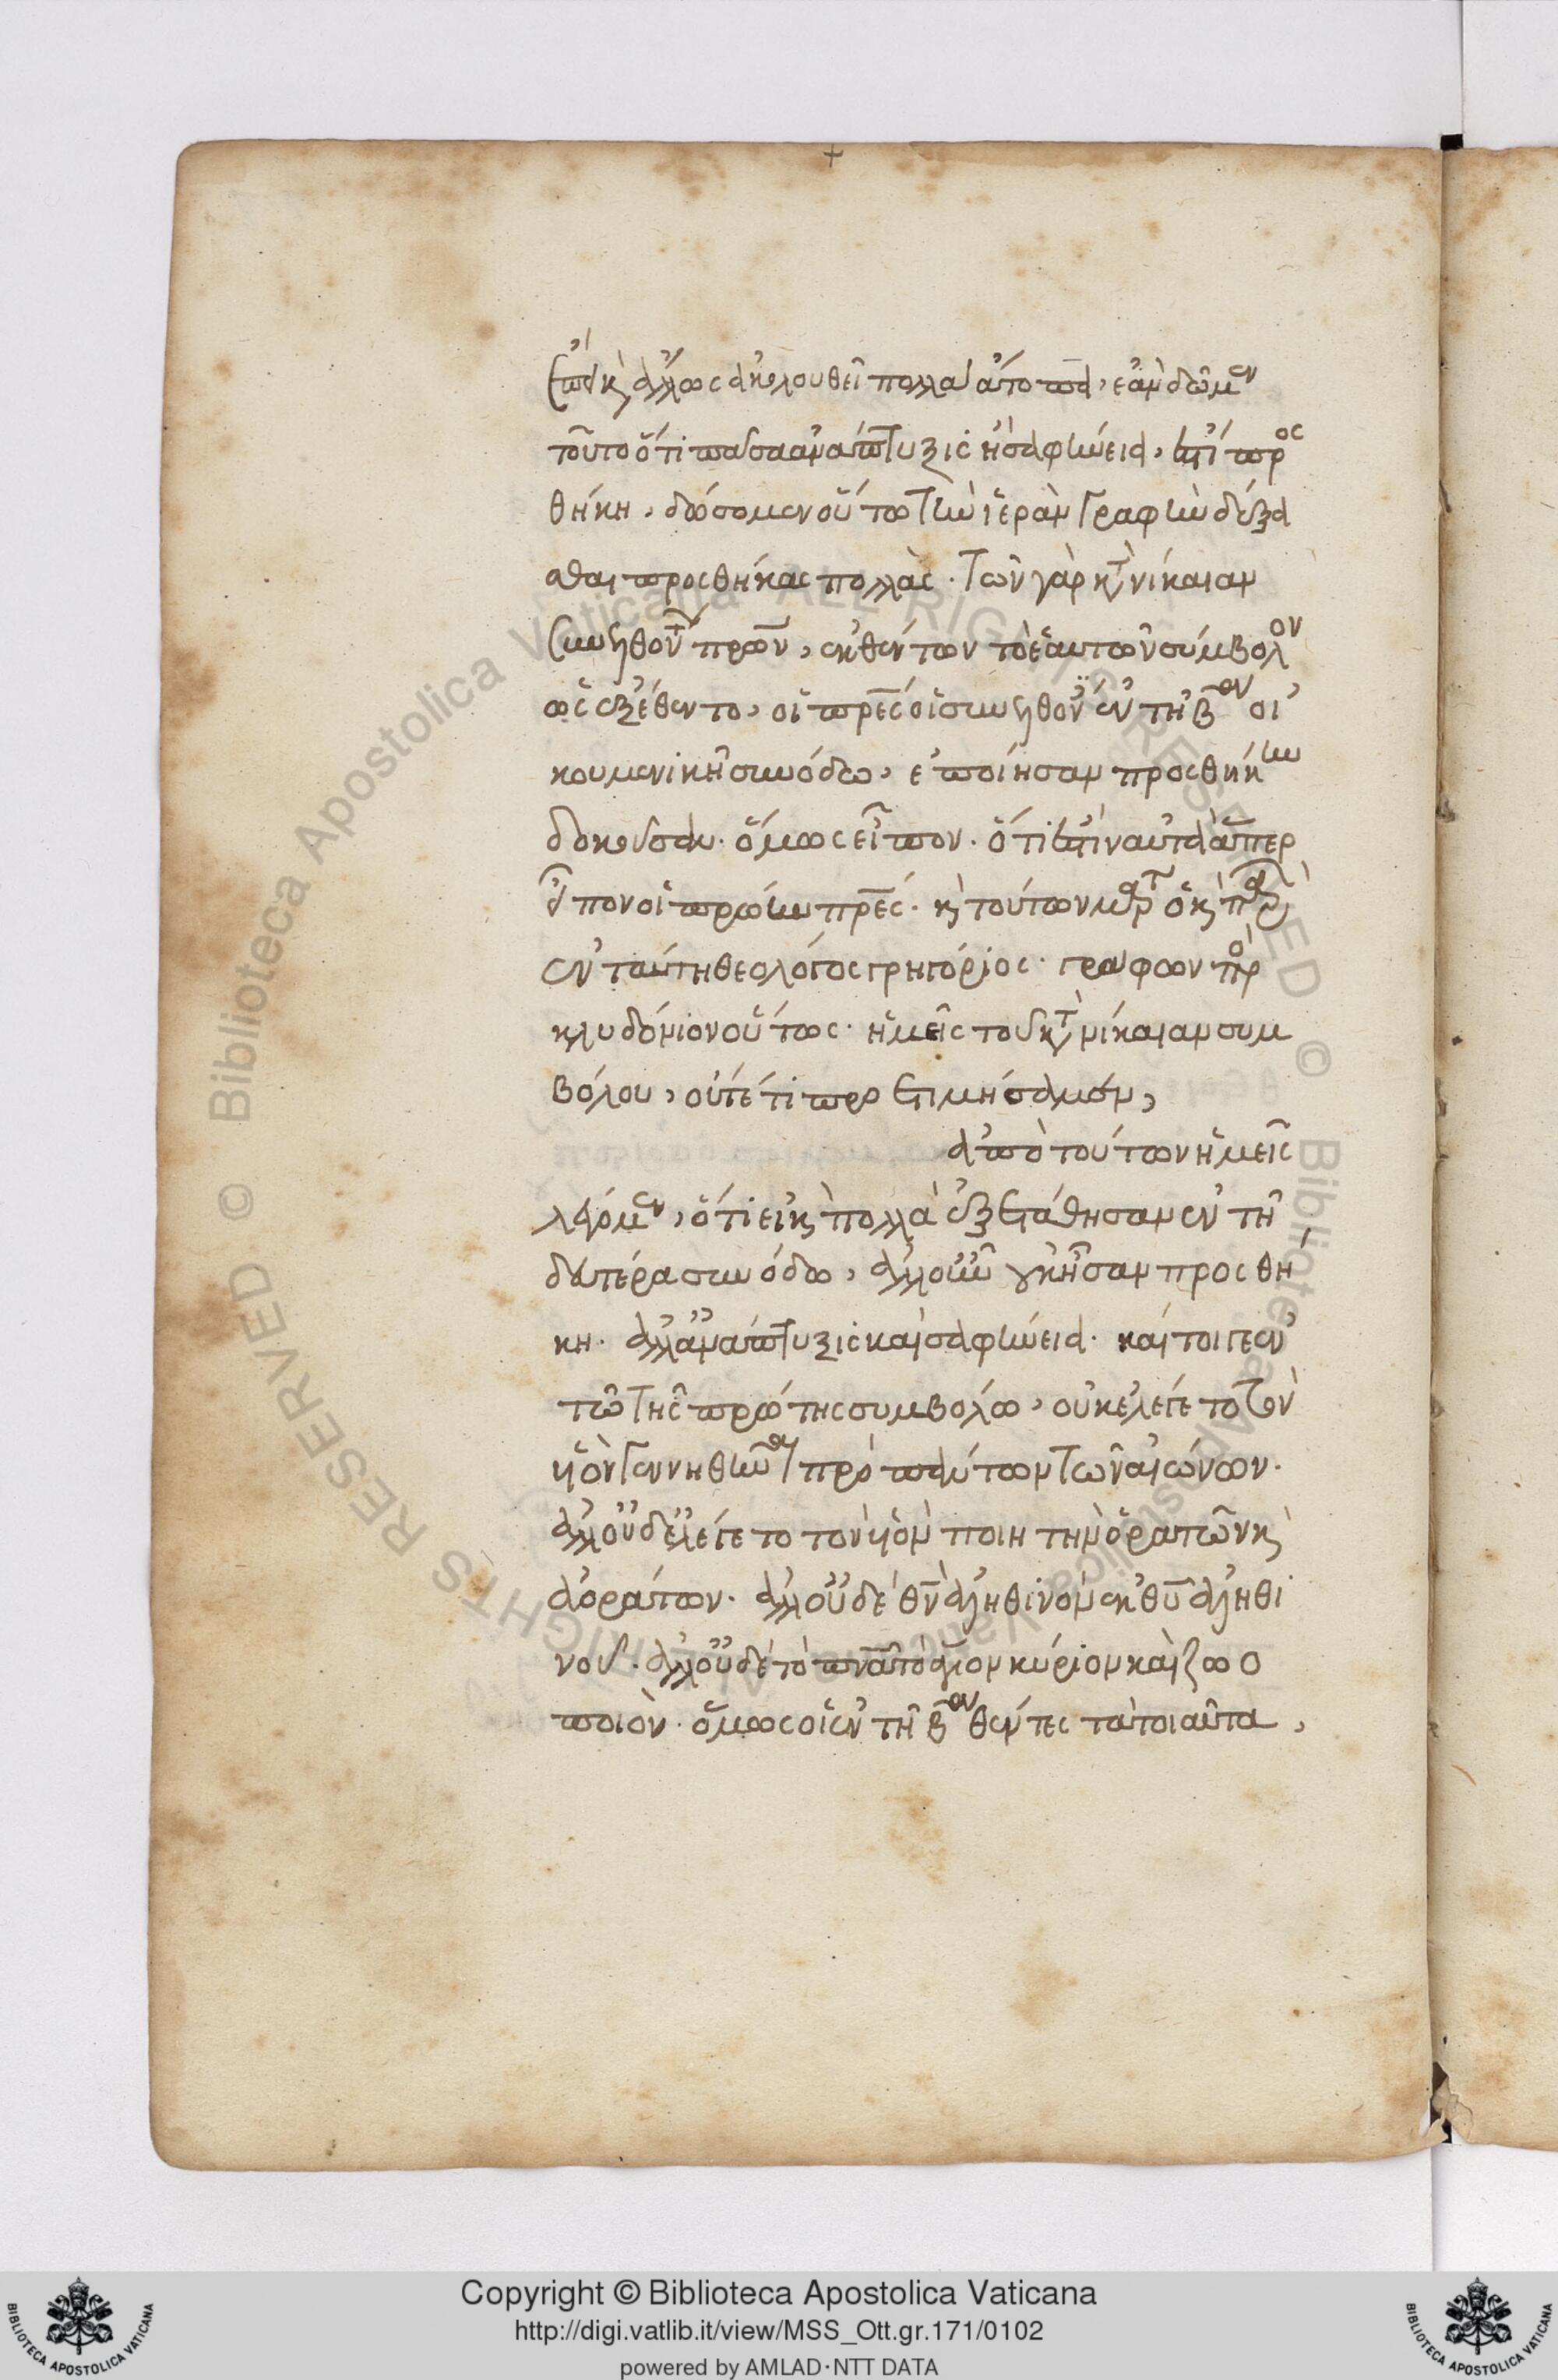 καὶ ἄλλως ἀκολουθεῖ πολλὰ ἄτοπα, ἐὰν δῶμεν
τοῦτο ὅτι πᾶσα ἀνάπτυξις ἢ σαφήνεια, ἐστὶ προς
θήκη, δώσομεν οὕτω τὴν ἱερὰν γραφὴν δέξα
σθαι προσθήκας πολλάς. τῶν γὰρ κατὰ νίκαιαν
συνελθόντων πρων, ἐκθέντων τὸ ἑαυτῶν σύμβολον
ὡς ἐξέθεντο, οἱ πρες οἱ συνελθόντες ἐν τῇ β οι
κουμενικῇ συνόδω, ἐποίησαν προσθήκην
δοκοῦσαν. ὅμως εἶπον. ὅτι ἐστὶν αὐτὰ ἅπερ
εἶπον οἱ πρώην πρες. καὶ τούτων μάρτυς ὁ καὶ
ἐν ταύτη θεολόγος γρηγόριος. γράφων πρὸς
κληδόνιον οὕτως. ἡμεῖς τοῦ κατὰ νίκαιαν συμ
βόλου, οὔτέ τι προετιμήσαμεν,
ἀπὸ τούτων ἡμεῖς
λέγομεν, ὅτι εἰ καὶ πολλὰ ἐξετάθησαν ἐν τῇ
δευτέρα συνόδω, ἀλλ' οὖν οὐκ ἦσαν προσθῆ
κη. ἀλλ' ἀνάπτυξις καὶ σαφήνεια. καίτοι γε ἐν
τῶ τῆς πρώτης συμβόλω, οὐκ ἔλεγε τὸ τὸν
υἱὸν γεννηθέντα πρὸ πάντων τῶν αἰώνων.
ἀλλ' οὐδὲ ἔλεγε τὸ τὸν υἱὸν ποιητὴν ὁρατῶν καὶ
ἀοράτων. ἀλλ' οὐδὲ θν ἀληθινὸν ἐκ θυ ἀληθι
νοῦ. ἀλλ' οὐδὲ τὸ πνα τὸ ἅγιον κύριον καὶ ζωο
ποιόν. ὅμως οἱ ἐν τῇ β θέντες τὰ τοιαῦτα,
Copyright © Biblioteca Apostolica Vaticana
http://digi.vatlib.it/view/MSS_Ott.gr.171/0102
powered by AMLAD·NTT DATA